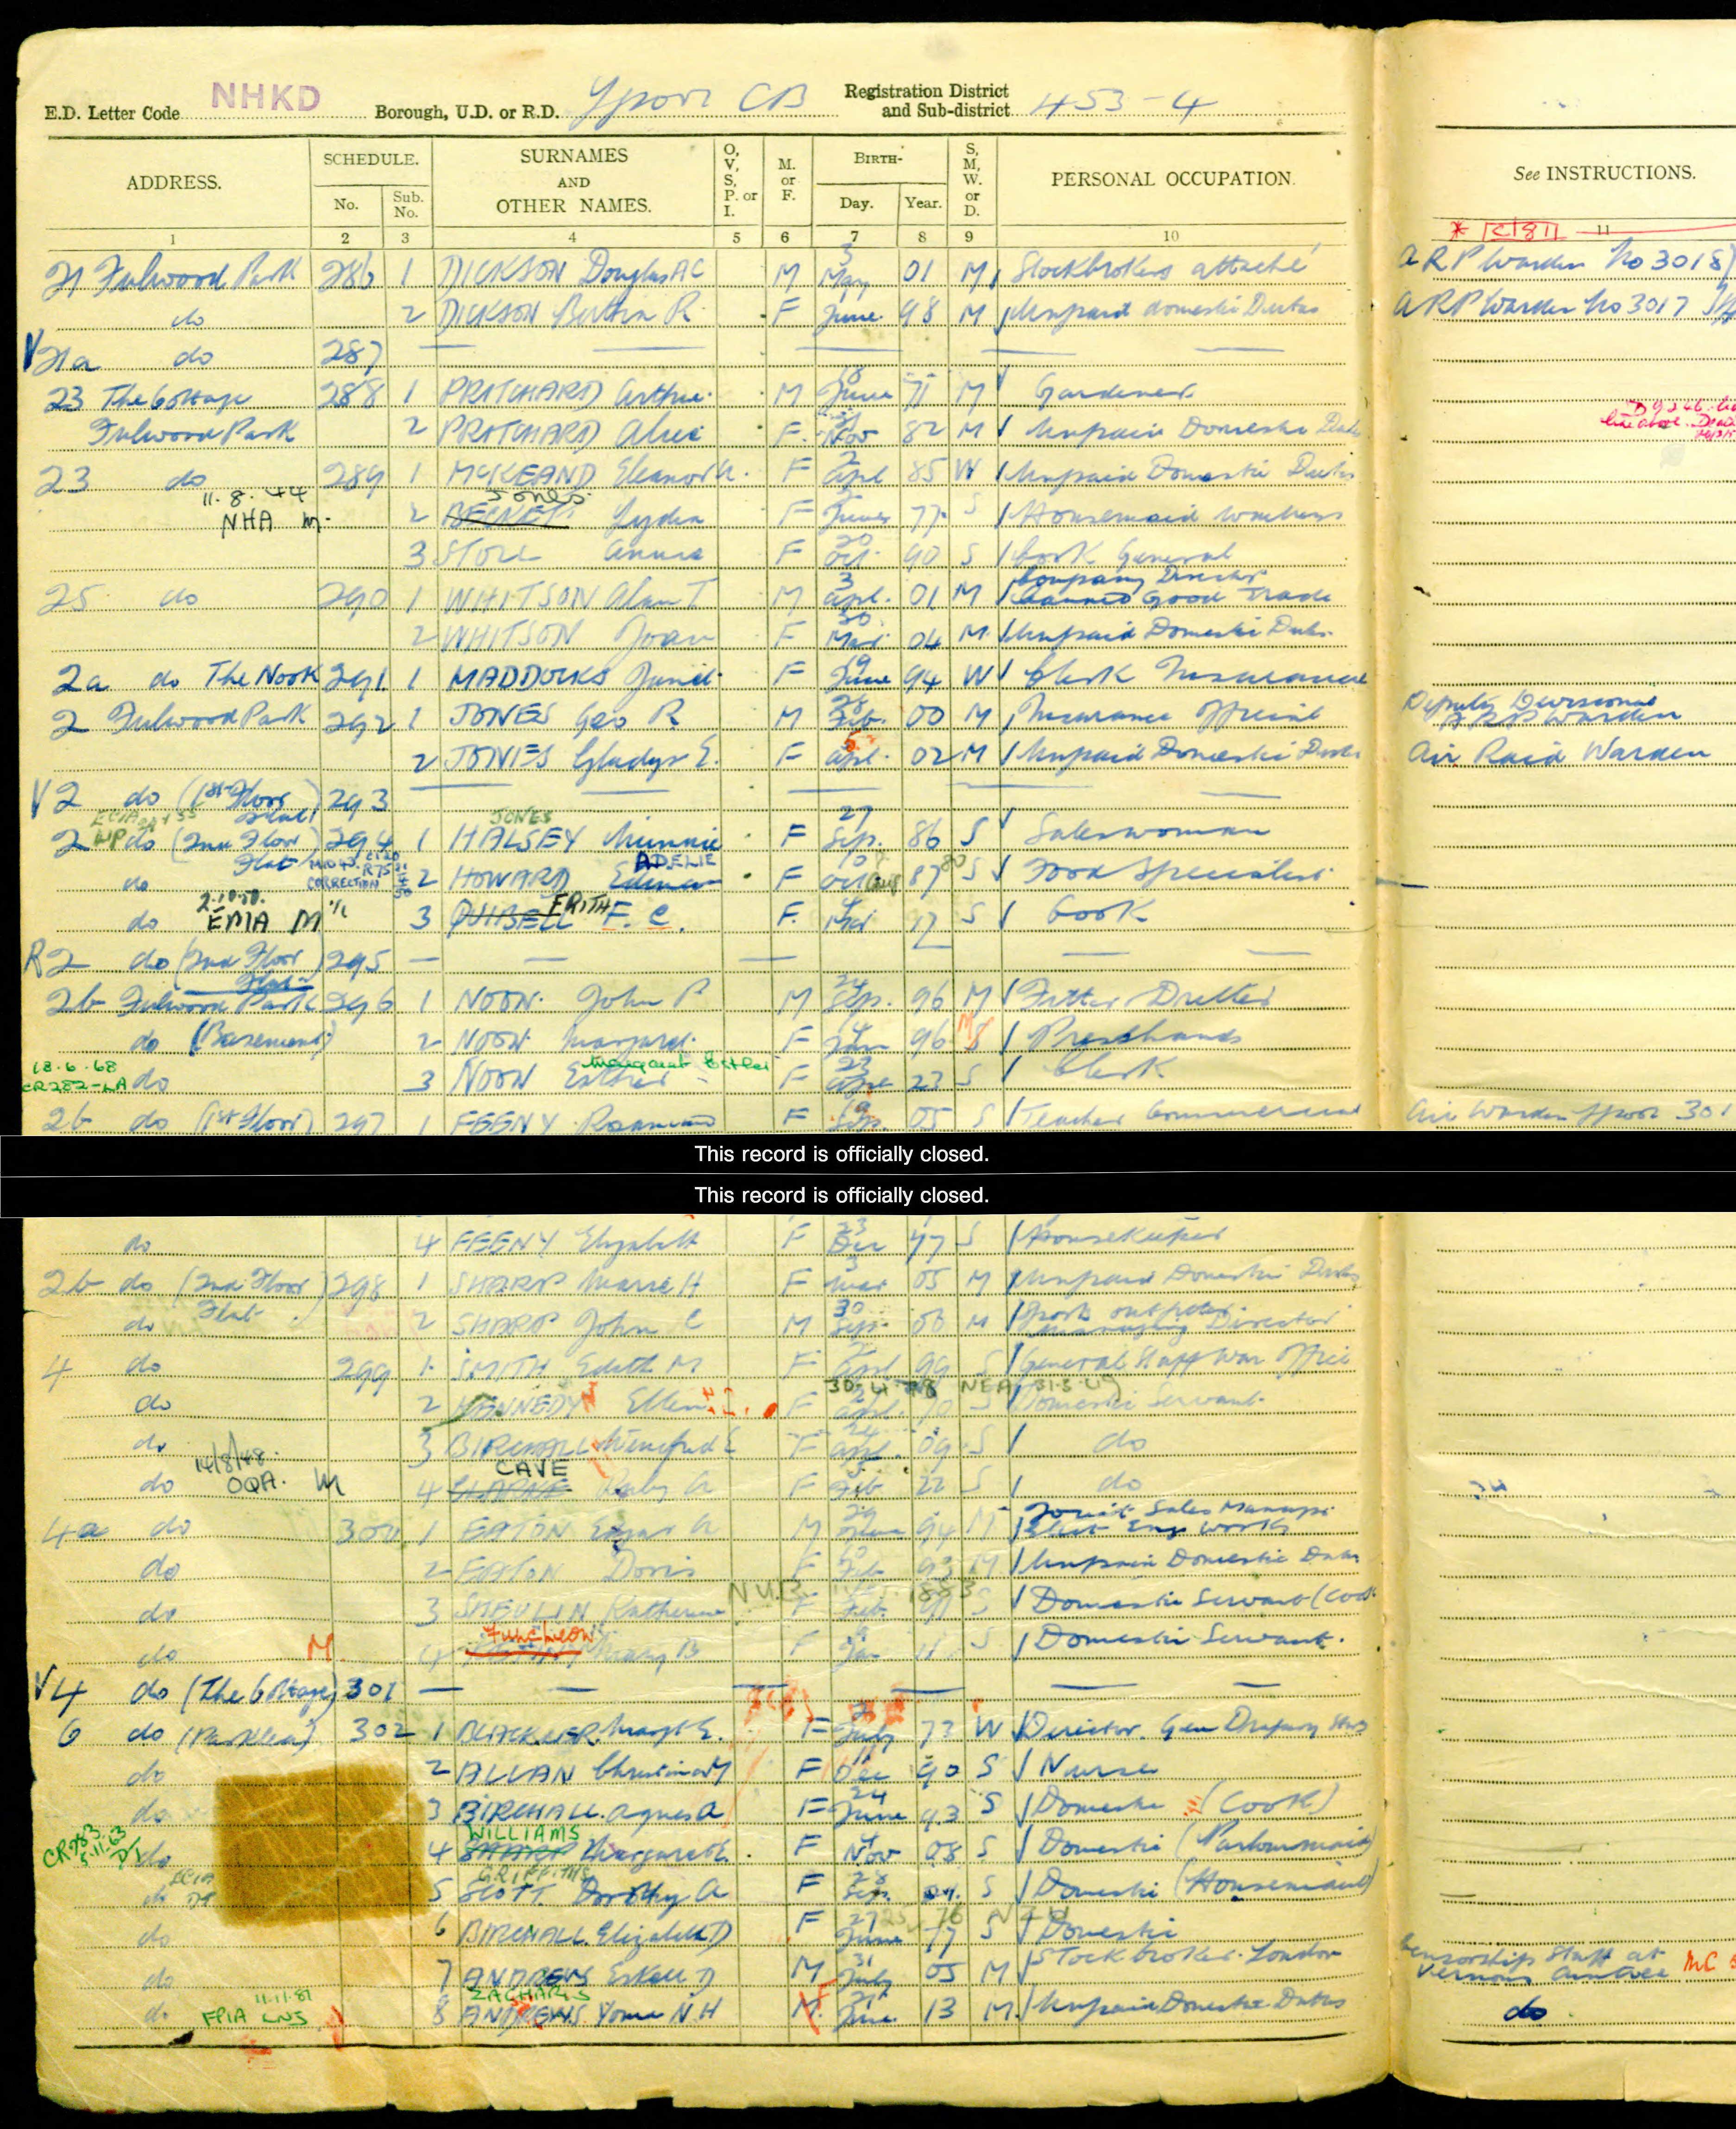 E.D. Letter Code NHKD Borough, U.D. or R.D. Lpool CB Registration District and Sub-district 453-4
ADDRESS. SCHEDULE. No. Sub. No. SURNAMES AND OTHER NAMES. O, V, S, P. or I. M. or F. BIRTH- Day. Year. S, M, W. or D. PERSONAL OCCUPATION. See INSTRUCTIONS.
1 2 3 4 5 6 7 8 9 10 11
21 Fulwood Park 286 1 DICKSON Douglas A C M 3 May 01 M Stockbrokers attaché ARP Warden No 3018
do 2 DICKSON Bertha R. F June 98 M Unpaid domestic Duties ARP Warden No 3017
V 21a do 287 — — — — —
23 The Cottage 288 1 PRITCHARD Arthur M June 71 M Gardener
Fulwood Park 2 PRITCHARD Alice F. Nov 82 M Unpaid Domestic Duties
23 do 289 1 McKEAND Eleanor F 2 Apl 85 W Unpaid Domestic Duties
11.8.44 NHA m. Jones
2 Lydia F 77 S Housemaid Waitress
3 Annie F 20 Oct 90 S Cook General
25 do 290 1 WHITSON Alan T M 3 Apl. 01 M Company Director Canned Good Trade
2 WHITSON Joan F 30 Mar 04 M. Unpaid Domestic Duties
2a do The Nook 291 1 MADDOCKS F 19 June 94 W Clerk Insurance
2 Fulwood Park 292 1 JONES Geo R M 28 Feb. 00 M Insurance Official Deputy Divisional ARP Warden
2 JONES Gladys E. F 5 Apl. 02 M Unpaid Domestic Duties Air Raid Warden
V 2 do (1st Floor Flat) 293 — — — — —
JONES
2 do (2nd Floor Flat) 294 1 HALSEY Minnie F 27 Sep. 86 S Saleswoman
CORRECTION ADELIE
do 2 HOWARD F 10 Oct 87 S Food Specialist
2.10.50. EMIA M FRITH
do 3 QUIBELL F. C. F. Mar 17 S Cook
R 2 do (2nd Floor Flat) 295 — — — — —
2b Fulwood Park 296 1 NOON John P M 24 Sep. 96 M Fitter Driller
do (Basement) 2 NOON Margaret F Jan 96 Presshands
18.6.68 CR282-LA Margaret Esther
do 3 NOON Esther F 23 S Clerk
2b do (1st Floor) 297 1 FEENY F 19 Sep. 05 S Teacher Commercial Air Warden Lpool 301
This record is officially closed.
This record is officially closed.
do 4 FEENY Elizabeth F 23 Dec S Housekeeper
2b do (2nd Floor Flat) 298 1 SHARP Marie H F 3 Mar 05 M Unpaid Domestic Duties
do 2 SHARP John C M 30 Sep. M Managing Director
4 do 299 1 SMITH Edith M F Apl 99 S General Staff War Office
30.4.78 NEA 31.3.49
do 2 KENNEDY Ellen F Apl. S Domestic Servant
do 3 BIRCHALL Winefred E F 24 Apl. 09 S do
14/8/48. OQA. m CAVE
do 4 Ruby A F Feb 22 S do
4a do 300 1 EATON Edgar A M 29 94 M Joint Sales Manager Elect Eng Works
do 2 EATON Doris F Feb M Unpaid Domestic Duties
NUB 1883
do 3 SHEVLIN Katherine F Feb. S Domestic Servant (Cook
M Luncheon
do 4 Mary B F Jan S Domestic Servant.
V 4 do (The Cottage) 301 — — — — —
6 do (Parklea) 302 1 BLACKLER Margt E. F July 73 W Director. Gen Drapery Stores
do 2 ALLAN Christina M F 11 Dec 90 S Nurse
do 3 BIRCHALL Agnes A F 24 June 93 S Domestic (Cook)
CR283 5.11.63 WILLIAMS
do 4 SHARP Margaret E. F 4 Nov 08 S Domestic (Parlourmaid)
GRIFFITHS
do 5 SCOTT Dorothy A F Sep. S Domestic (Housemaid)
do 6 BIRCHALL Elizabeth D F 27 June 77 S Domestic
do 7 ANDREWS D M 31 July 05 M Stockbroker. London Censorship Staff at Vernons Aintree
11.11.81 FPIA LNS ZACHARIS
do 8 ANDREWS N.H June 13 M. Unpaid Domestic Duties do